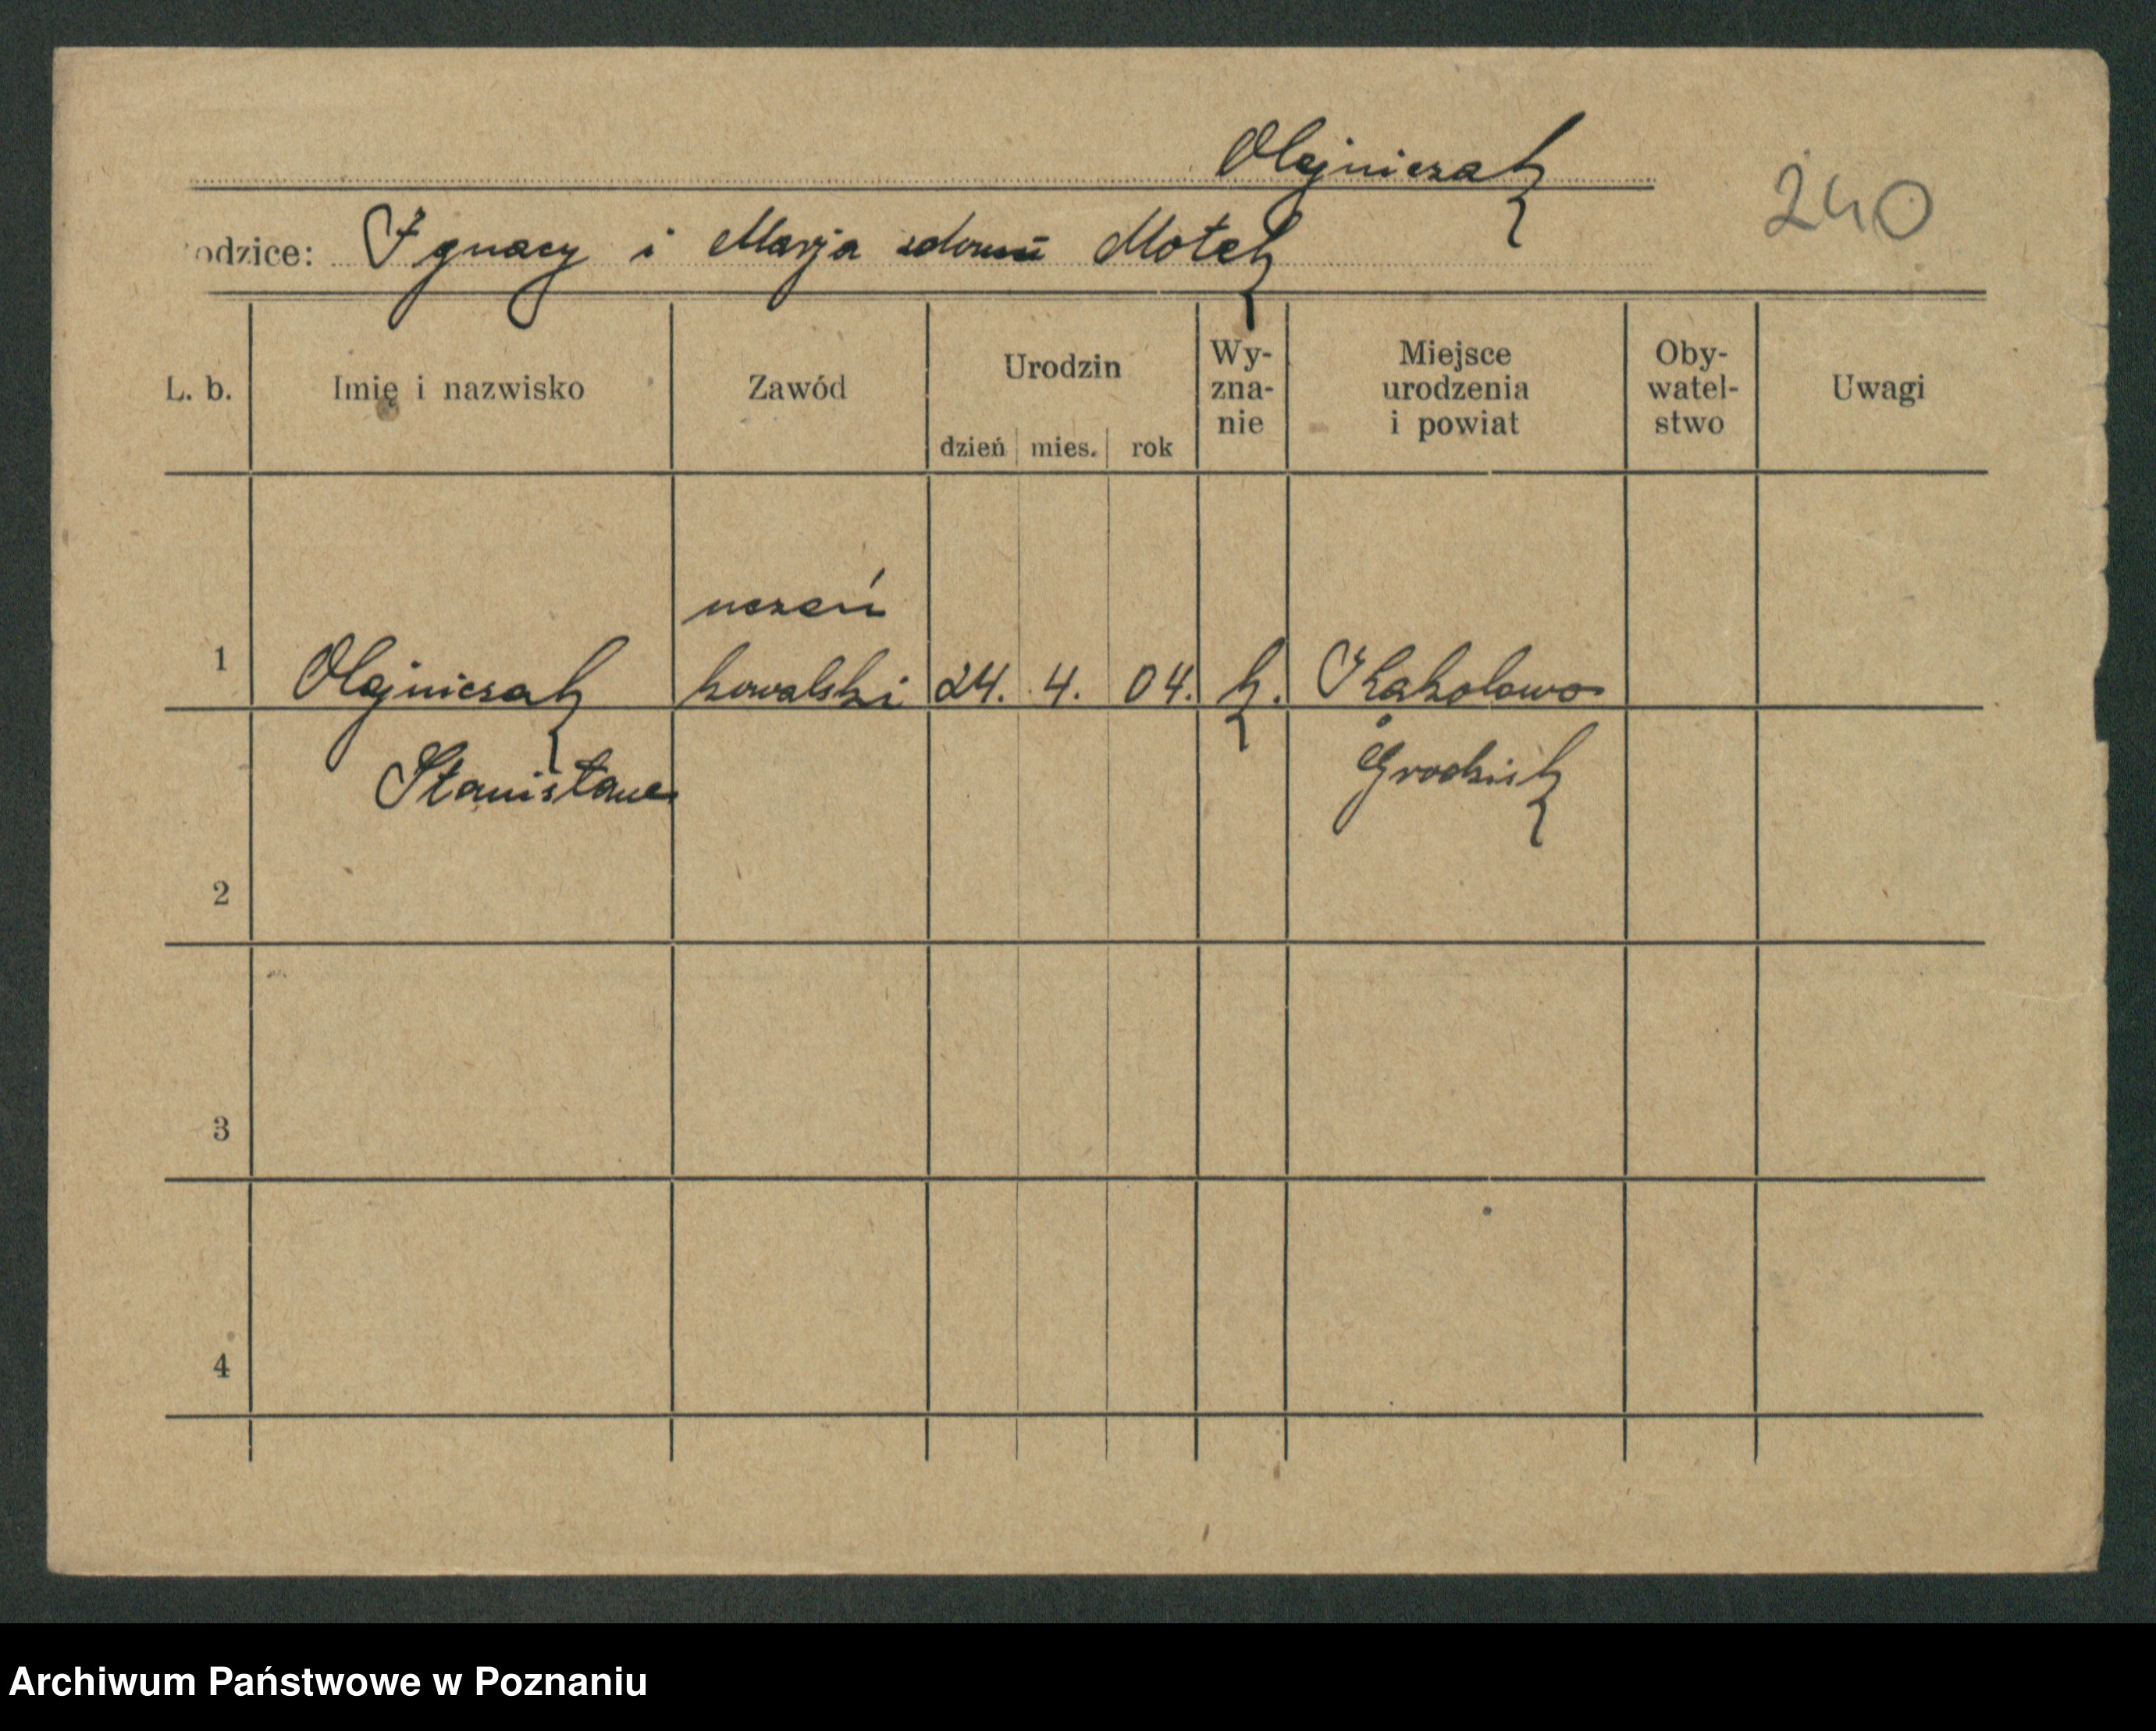 Olejniczak
240
odzice: Ignacy i Marja zdomu Motek
L. b. Imię i nazwisko Zawód Urodzin dzień mies. rok Wy-zna-nie Miejsce urodzenia i powiat Oby-watel-stwo Uwagi
uczeń
1 Olejniczak kowalski 24. 4. 04. k. Kąkolowo
Stanisław Grodzisk
2
3
4
Archiwum Państwowe w Poznaniu